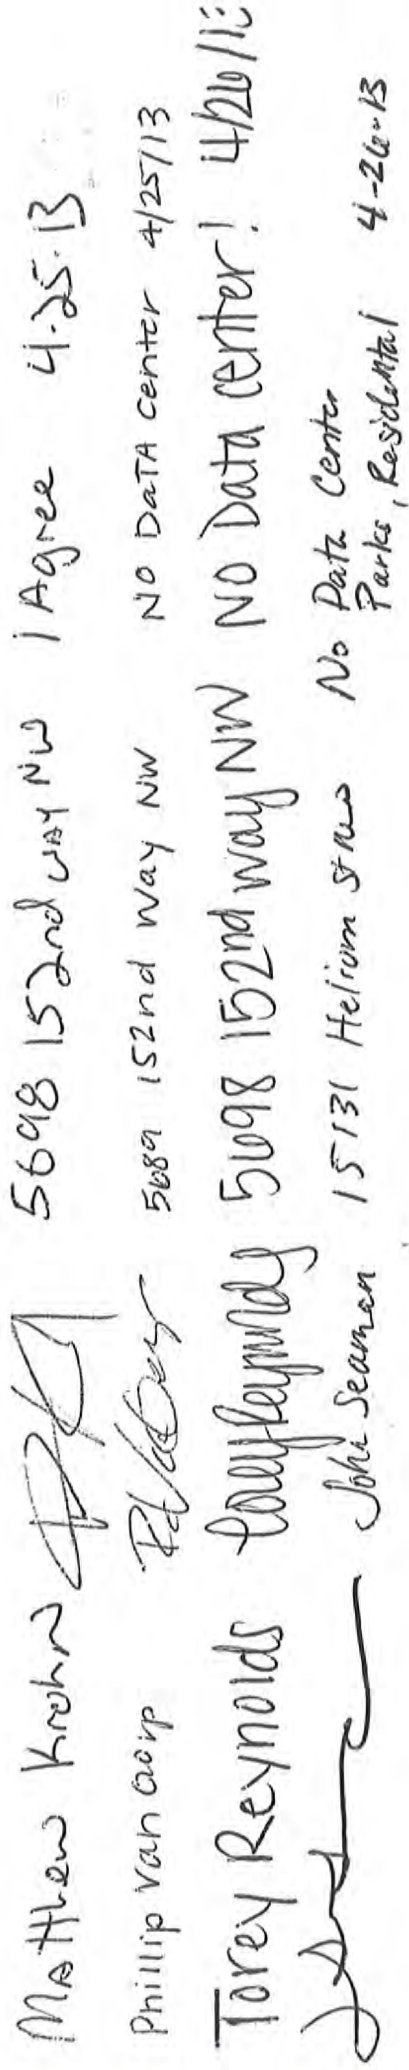 Matthew Krohn 5698 152nd way NW I Agree 4.25.13
Phillip Van 5689 152nd Way NW NO DaTA center 4/25/13
Torey Reynolds Torey Reynolds 5698 152nd way NW NO Data center! 4/26/13
John Seaman 15131 Helium St NW No Data Center 4-26-13
Parks, Residental